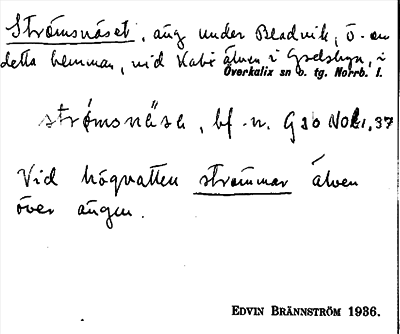 Strömsnäset, äng under Bladvik, ö. om
detta hemman, vid Kalix älven i Gyljen, i
Överkalix sn o. tg. Norrb. l.
strǿmsnäsə, bf. n.
Vid högvatten strömmar älven
över ängen.
EDVIN BRÄNNSTRÖM 1936.